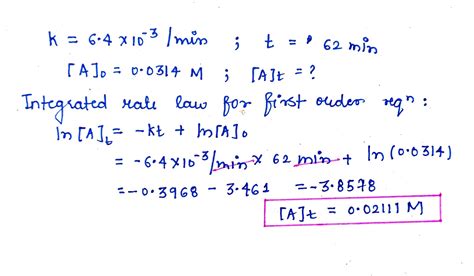 k = 6.4 × 10⁻³ /min ; t = 62 min
[A]₀ = 0.0314 M ; [A]t = ?
Integrated rate law for first order reqⁿ :
ln [A]t = -kt + ln[A]₀
= -6.4×10⁻³/min × 62 min + ln (0.0314)
= -0.3968 - 3.461 = -3.8578
[A]t = 0.02111 M